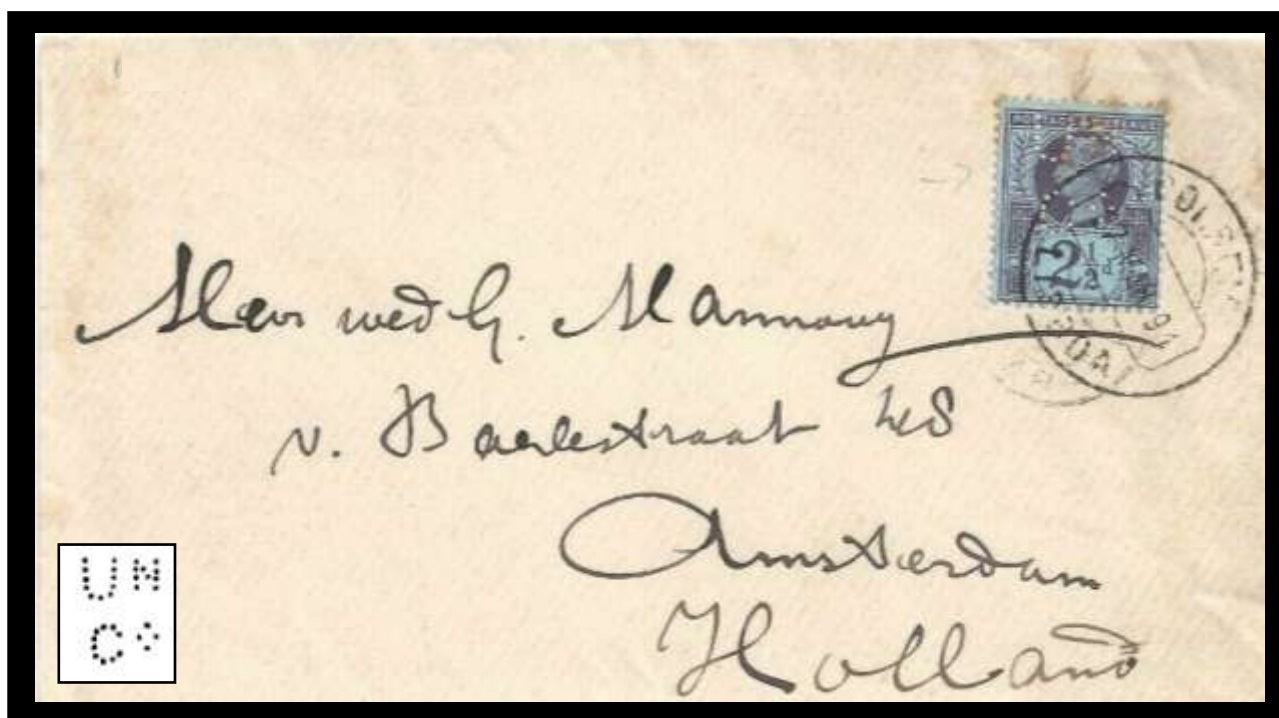 2½d
Mevr wed G. Mannoury
v. Baerlestraat 48
Amsterdam
Holland
UM
Co